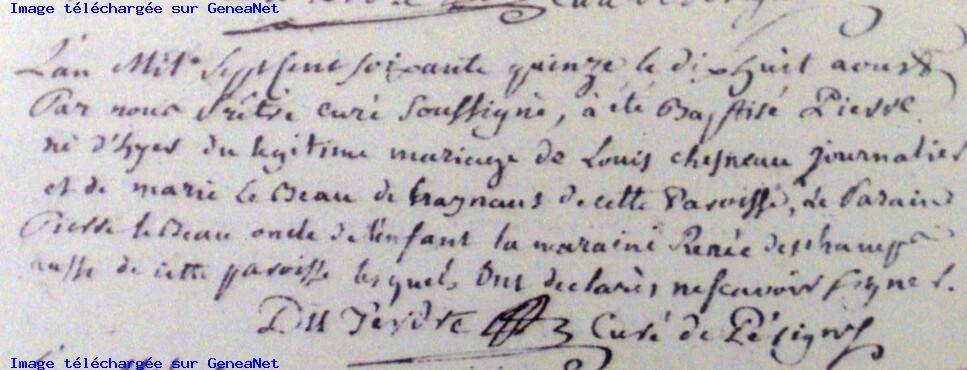 Image téléchargée sur GeneaNet
L'an Mil Sept cent soixante quinze le dixhuit aoust
Par nous Prêtre curé soussigné, à été Baptisé Pierre
né d'hyer du legitime mariage de Louis chesneau journalier
et de marie Le Beau de cette Paroisse, Le Parain
Pierre le Beau oncle de l'enfant la maraine Renée deschamps
aussi de cette paroisse lesquels ont declarés ne scavoir signer.
Du Tertre Curé de
Image téléchargée sur GeneaNet